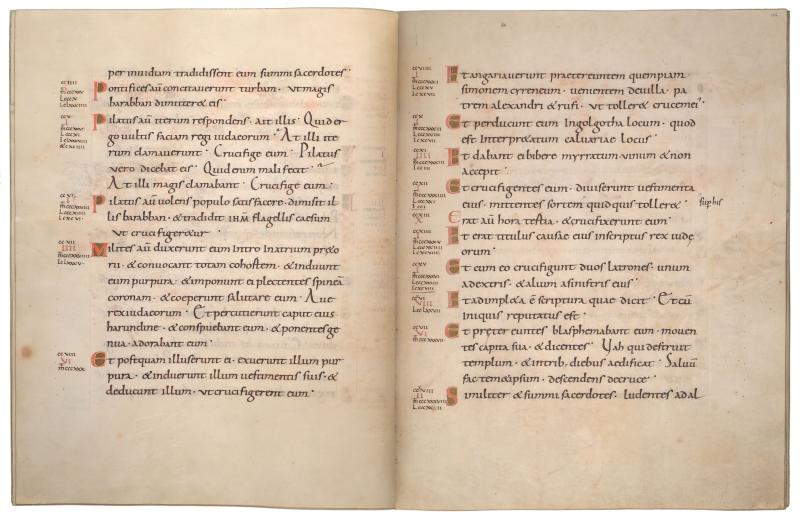 per inuidiam tradidissent eum summi sacerdotes·
Pontifices aū concitauerunt turbam· ut magis
barabban dimitteret eis·
Pilatus aū iterum respondens· ait illis· Quid er
go uultis faciam regi iudaeorum· At illi ite
rum clamauerunt· Crucifige eum· Pilatus
uero dicebat eis· Quid enim mali fecit·
At illi magis clamabant· Crucifige eum·
Pilatus aū uolens populo satisfacere· dimisit il
lis barabban· & tradidit IHM flagellis caesum
ut crucifigeretur·
Milites aū duxerunt eum intro in atrium praeto
rii· & conuocant totam cohortem· & induunt
eum purpura· & imponunt ei plectentes spineā
coronam· & coeperunt salutare eum· Aue
rex iudaeorum· Et percutiebant caput eius
harundine· & conspuebant eum· & ponentes ge
nua· adorabant eum·
Et postquam illuserunt ei· exuerunt illum pur
pura· & induerunt illum uestimentis suis· &
deducunt illum· ut crucifigerent eum·
Et angariauerunt praetereuntem quempiam·
simonem cyreneum· uenientem de uilla· pa
trem alexandri & rufi· ut tolleret crucem ei·
Et perducunt eum in golgotha locum· quod
est interpretatum caluariae locus·
Et dabant ei bibere myrratum uinum & non
accepit·
Et crucifigentes eum· diuiserunt uestimenta
eius· mittentes sortem quid quis tolleret·
sup his
Erat aū hora tertia· & crucifixerunt eum·
Et erat titulus causae eius inscriptus rex iudę
orum·
Et cum eo crucifigunt duos latrones· unum
a dextris· & alium a sinistris eius·
Et adimpleta ē scriptura quae dicit· Et cū
iniquis reputatus est·
Et pręter euntes blasphemabant eum· mouen
tes capita sua· & dicentes· Vah qui destruit
templum· & in tribus diebus aedificat· Saluū
fac temetipsum· descendens de cruce·
Similiter & summi sacerdotes· ludentes ad al